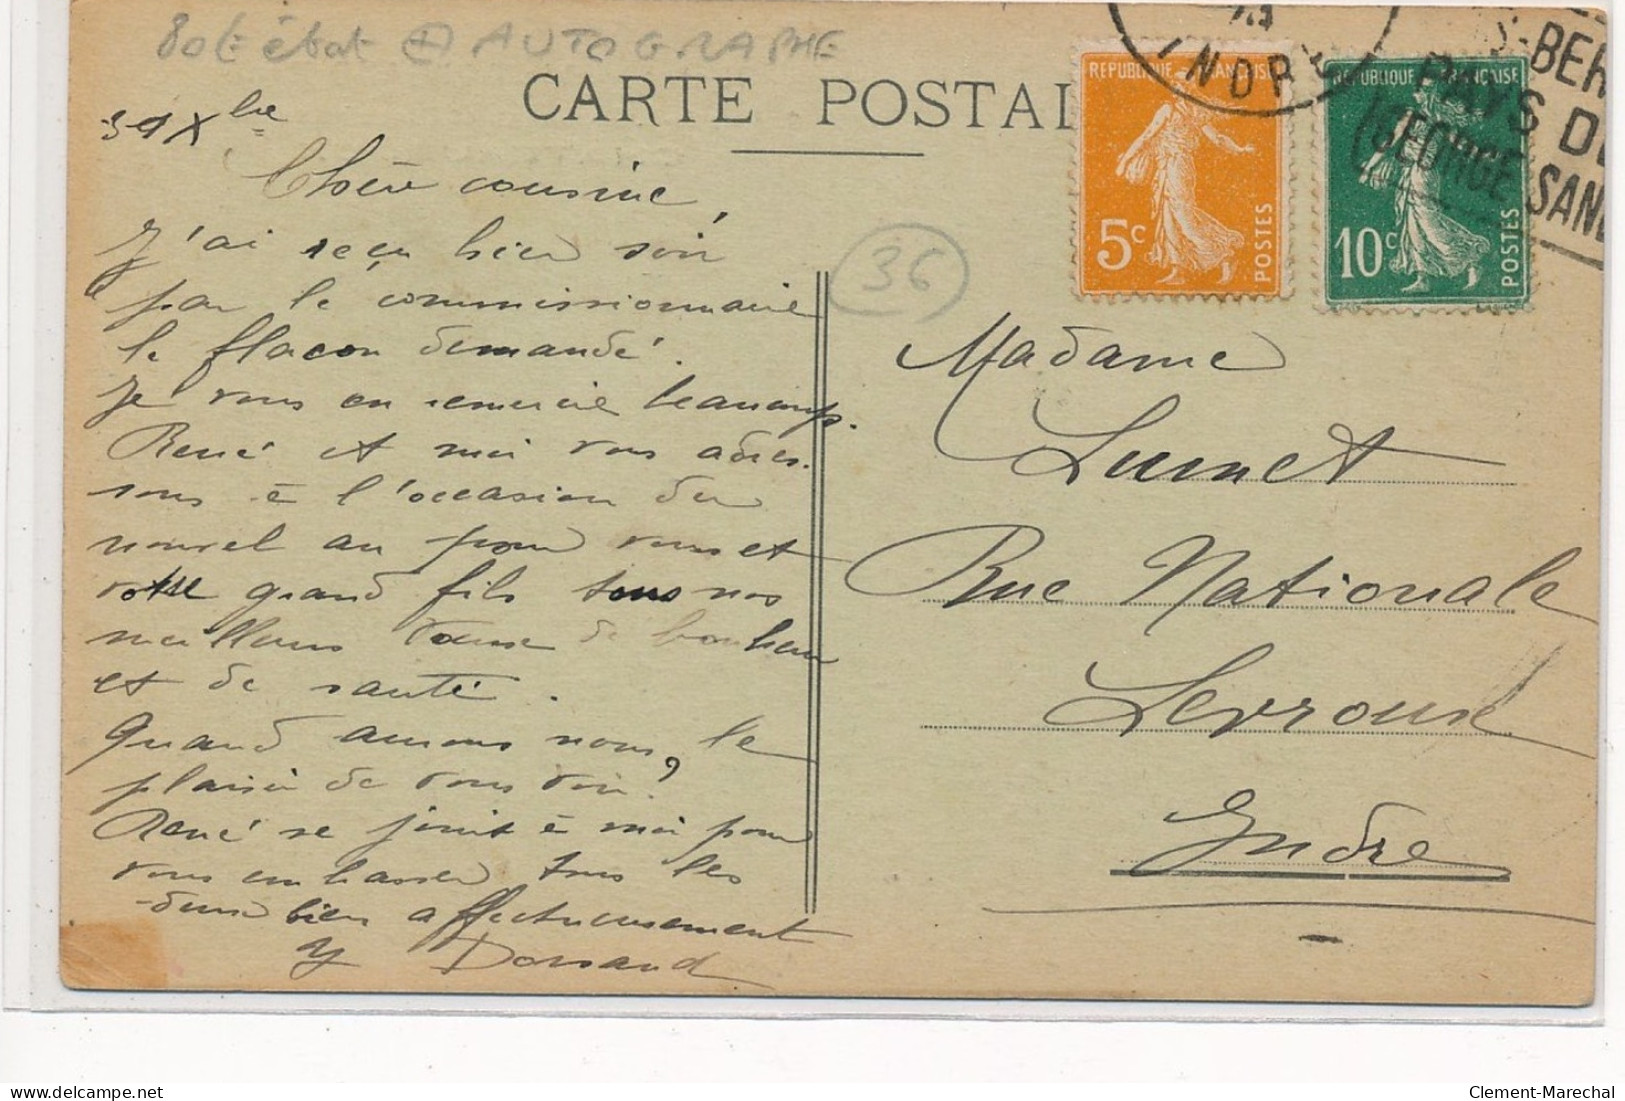 80€ état + AUTOGRAPHE
CARTE POSTAL
31 Xbre
Chère cousine,
J'ai reçu hier soir
par le commissionnaire
le flacon demandé.
Je vous en remercie beaucoup.
René et moi vous adres-
sons à l'occasion du
nouvel an pour vous et
votre grand fils tous nos
meilleurs vœux de bonheur
et de santé.
Quand aurons nous, le
plaisir de vous voir?
René se joint à moi pour
vous embrasser tous les
deux bien affectueusement
Y Dorsand
36
REPUBLIQUE FRANÇAISE
5c
POSTES
REPUBLIQUE FRANÇAISE
10c
POSTES
INDRE
BER
PAYS DE
GEORGE SAND
Madame
Lumet
Rue Nationale
Levroux
Indre
delcampe.net
Clement-Marechal